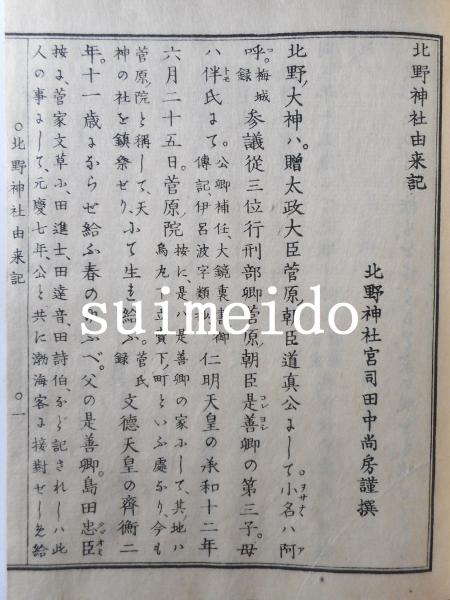 北野神社由来記
北野神社宮司田中尚房謹撰
北野ノ大神ハ。贈太政大臣菅原ノ朝臣道真公にして。小名ハ阿
呼。梅城録 参議從三位行刑部卿菅原ノ朝臣是善卿の第三子。母
ハ伴氏にて。公卿補任、大鏡裏書、御傳記、伊呂波字類 仁明天皇の承和十二年
六月二十五日。菅原ノ院 按に、是ハ是善卿の家にして、其ノ地ハ烏丸ノ立賣下ノ町といふ處なり、今も
菅原ノ院と稱して、天神の社を鎮祭せり、にて生れ給ふ 菅氏録 文德天皇の齊衡二
年。十一歳にならせ給ふ春のゆふべ。父の是善卿。島田忠臣
按に、菅家文草に、田進士、田達音、田詩伯、など記されしハ此
人の事にして、元慶七年、公と共に渤海客に接對せしめ給
○北野神社由来記 ○一
suimeido